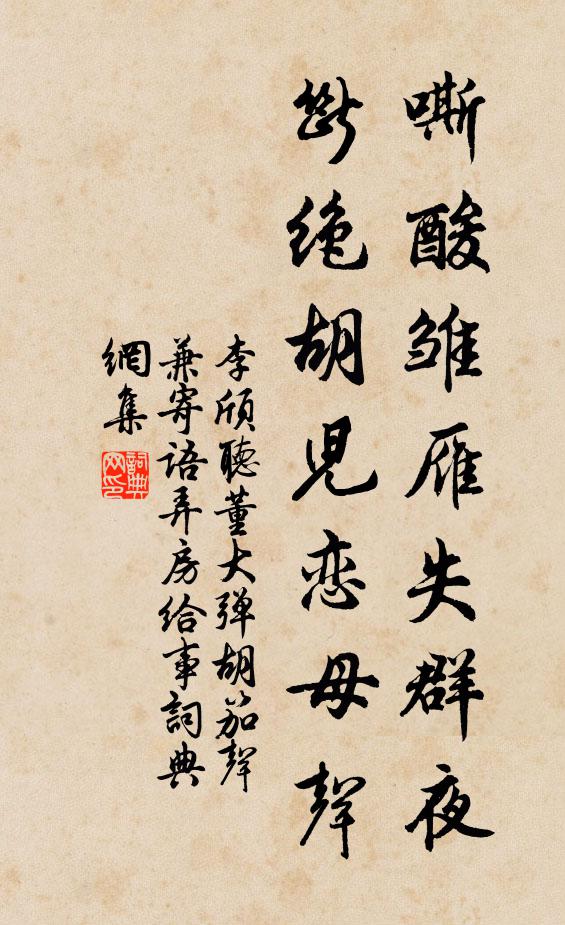 嘶酸雏雁失群夜
断绝胡児恋母聲
李頎聽董大弹胡笳聲
兼寄语弄房给事詞典
網集
詞典网印